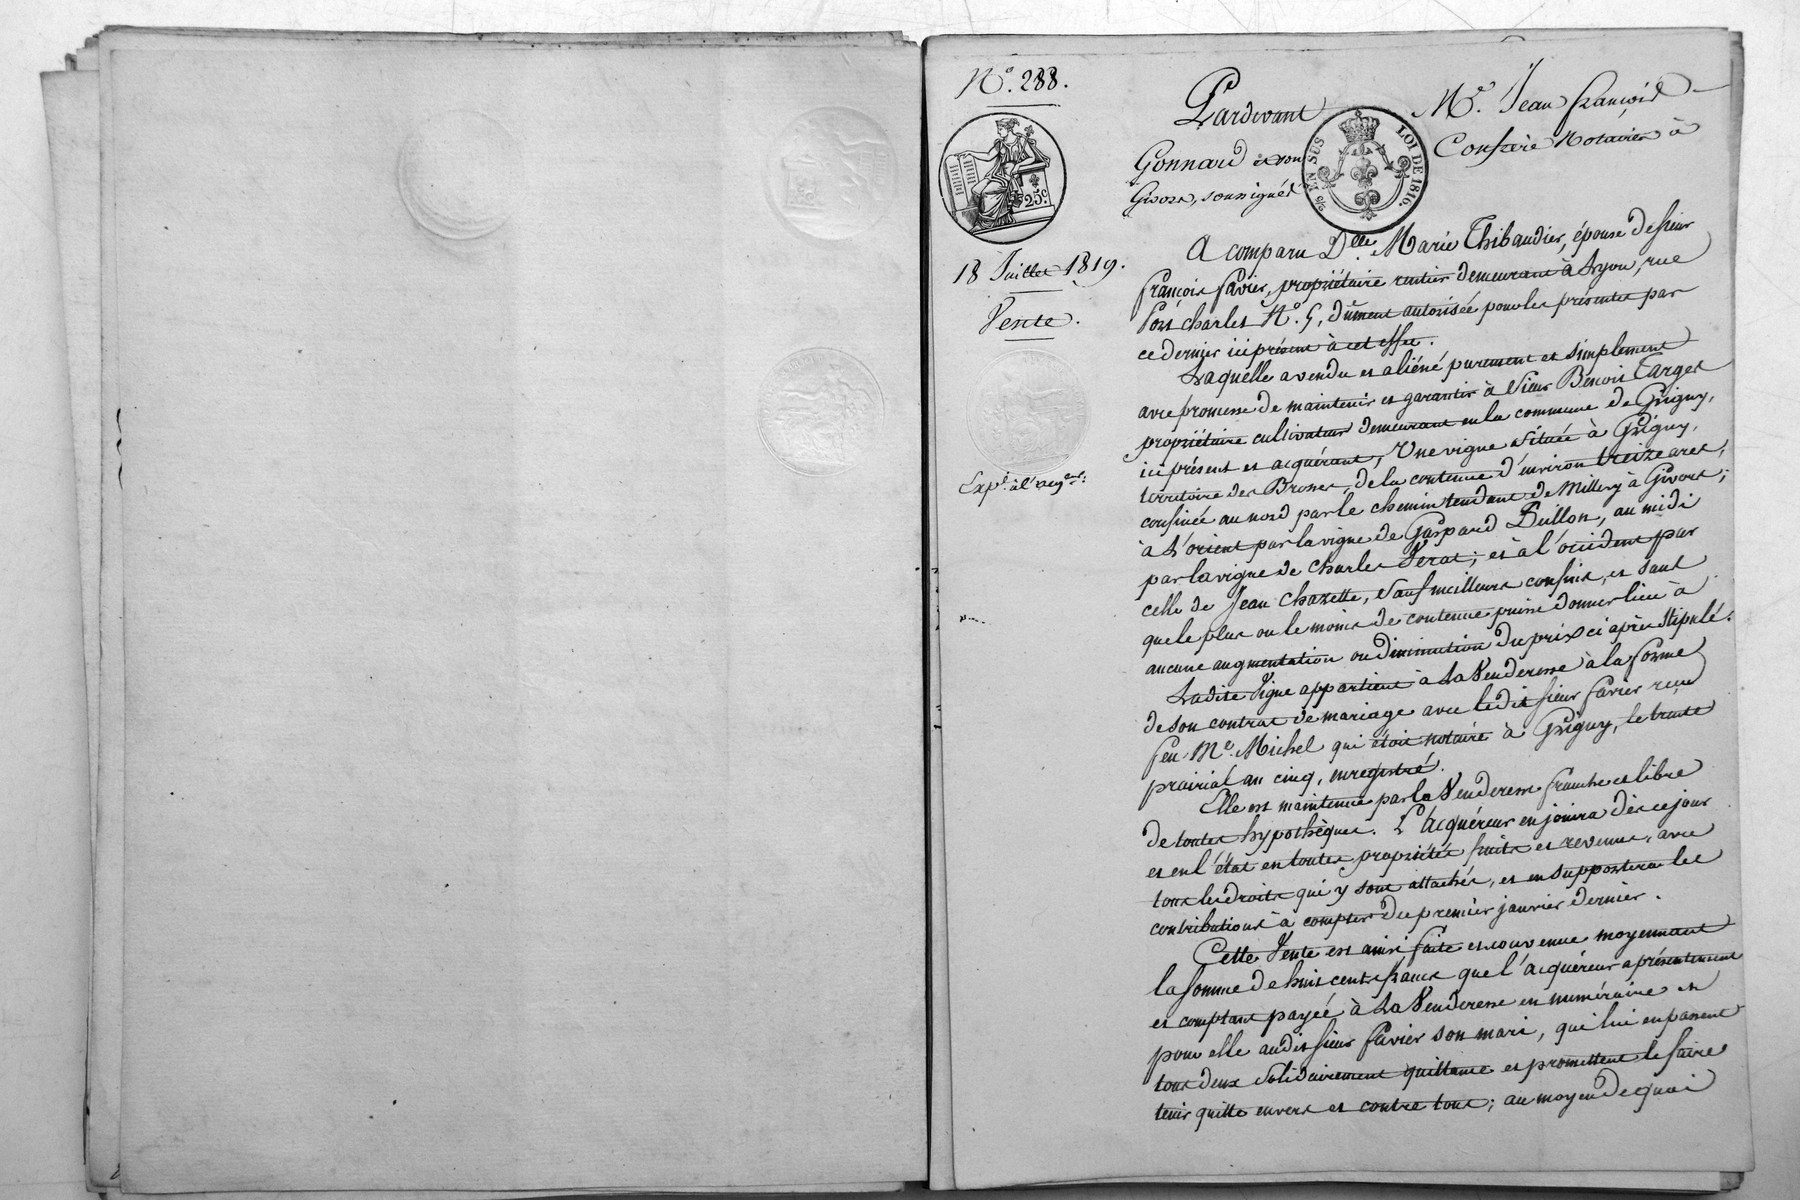 N.° 288.
25 c.
18 Juillet 1819.
Vente.
Exp.é à l'acq.eur
Pardevant M.e Jean François
EN SUS
LOI DE 1816.
Gonnard et son Confrère Notaires à
Givors, soussignés
A comparu D.lle Marie Thibaudier, épouse de sieur
François Favier, propriétaire rentier demeurant à Lyon, rue
Port Charles N.° 5, dûment autorisée pour les présentes par
ce dernier ici présent à cet effet.
Laquelle a vendu et aliéné purement et simplement
avec promesse de maintenir et garantir à Sieur Benoit Targes
propriétaire cultivateur demeurant en la commune de Grigny,
ici présent et acquérant, Une vigne située à Grigny,
territoire des Brosses, de la contenue d'environ treize ares,
confinée au nord par le chemin tendant de Millery à Givors;
à l'orient par la vigne de Gaspard Duillon, au midi
par la vigne de Charles Verat; et à l'occident par
celle de Jean Chazette, sauf meilleurs confins, et sans
que le plus ou le moins de contenue puisse donner lieu à
aucune augmentation ou diminution du prix ci après stipulé.
Ladite Vigne appartient à La Venderesse à la forme
de son contrat de mariage avec ledit sieur Favier reçu
feu M.e Michel qui étoit notaire à Grigny, le trente
prairial an cinq, enregistré.
Elle est maintenue par la Venderesse franche et libre
de toutes hypothèques. L'Acquéreur en jouira dès ce jour
et en l'état en toutes propriétés fruits et revenus, avec
tous les droits qui y sont attachés, et en supportera les
contributions à compter du premier janvier dernier.
Cette Vente est ainsi faite et convenue moyennant
la somme de huit cents francs que l'acquéreur a présentement
et comptant payée à La Venderesse en numéraire et
pour elle audit sieur Favier son mari, qui lui en passent
tous deux solidairement quittance et promettent le faire
tenir quitte envers et contre tous; au moyen de quoi